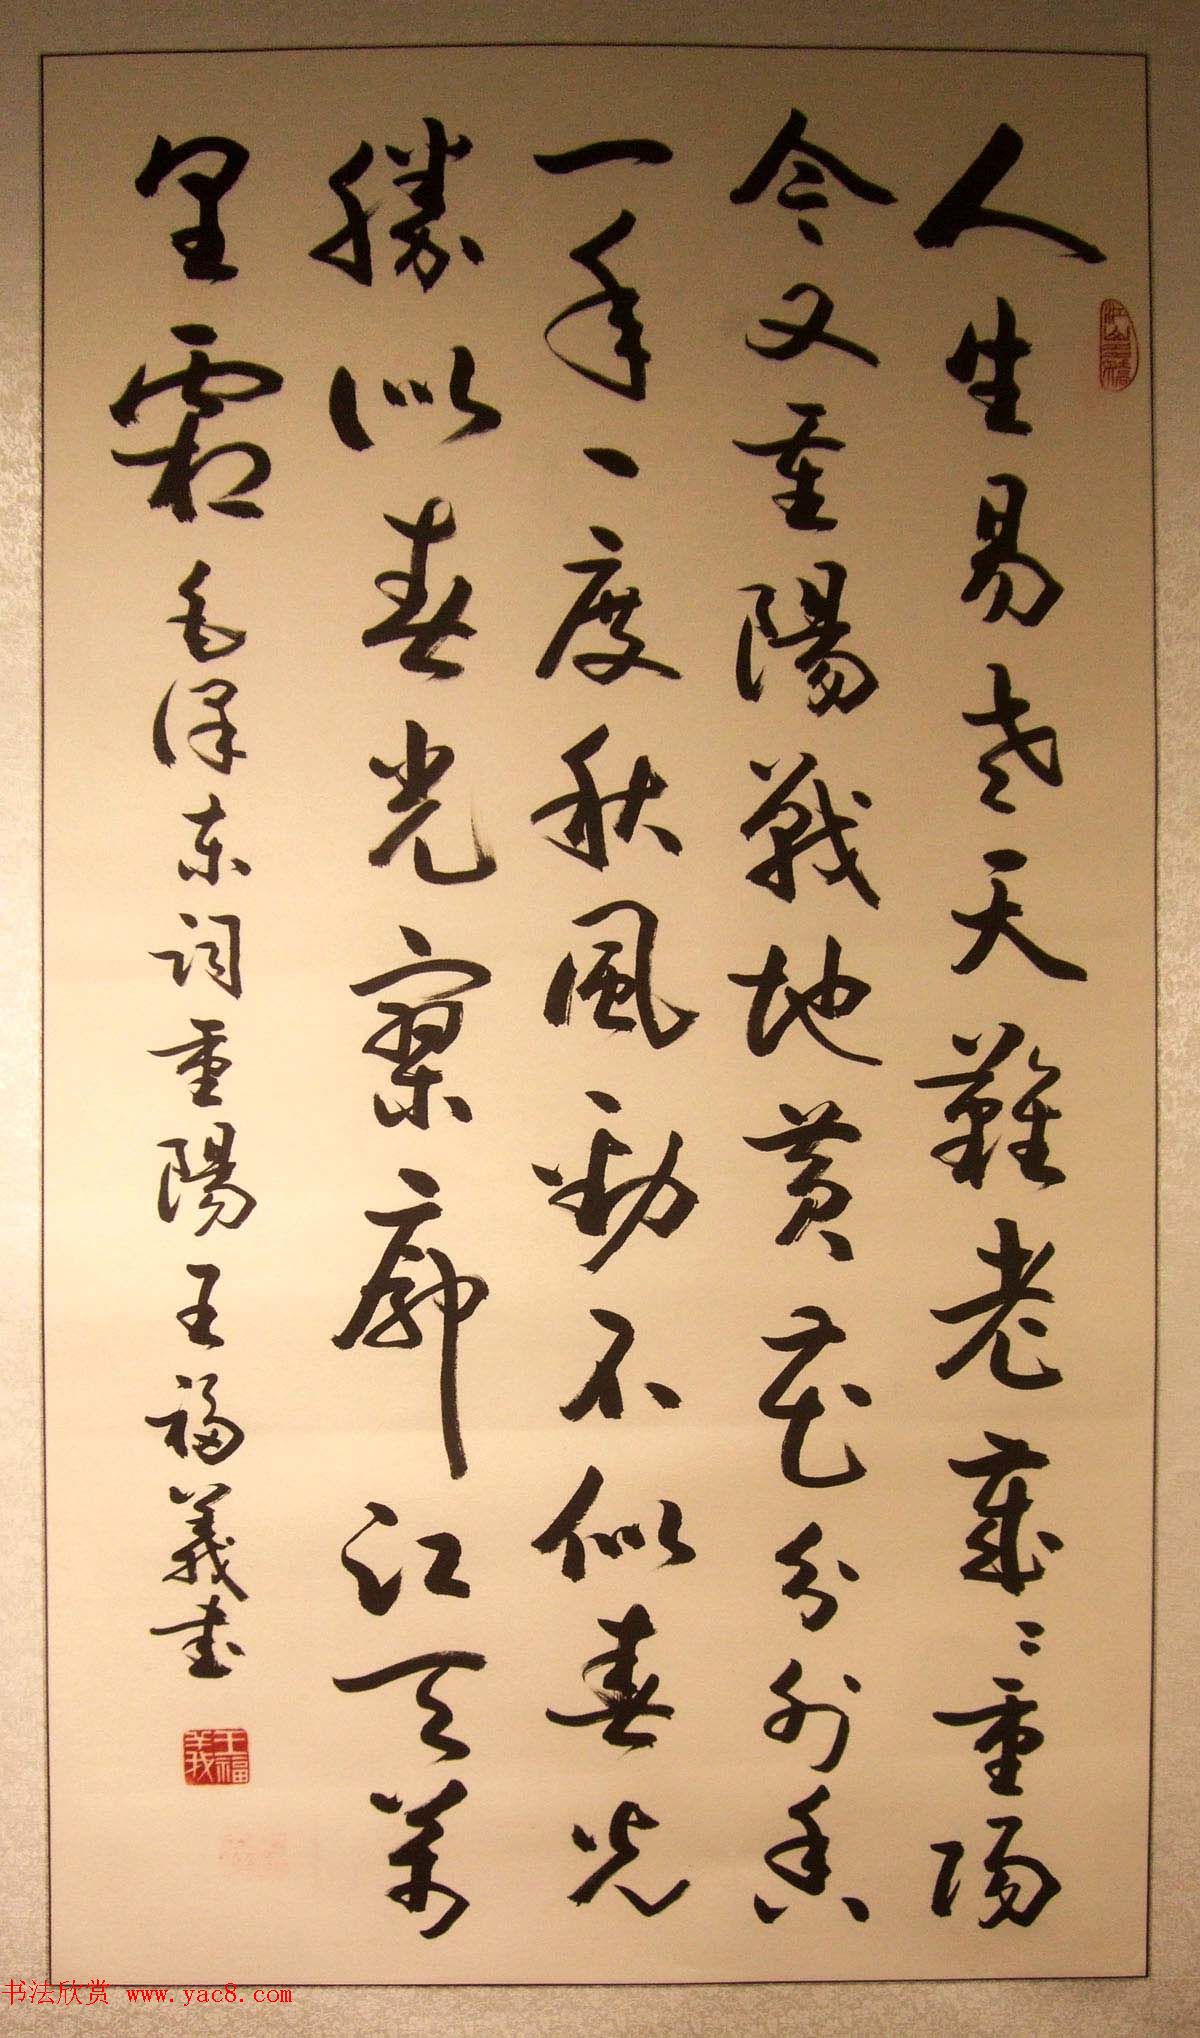 人生易老天難老歲〻重陽
今又重陽戰地黃花分外香
一年一度秋風勁不似春光
勝似春光寥廓江天萬
里霜毛澤東詞重陽王福義書
王福義
书法欣赏 www.yac8.com